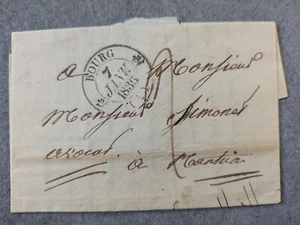 BOURG
7
JANV.
1836
(1)
2
a Monsieur
Monsieur Simonet
avocat
à Nantua